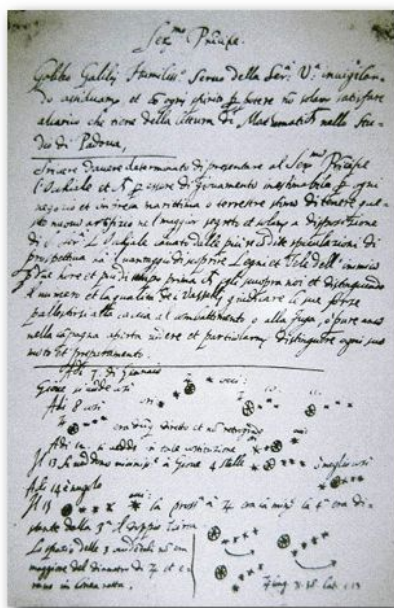 Ser.mo Principe.
Galileo Galilej Humiliss.o Servo della Ser.a V.a invigilan-
do assiduam.te et con ogni spirito per potere non solam. satisfare
alcarico che tiene della lettura di Mathematiche nello Stu-
dio di Padova,
Scrivere d'avere determinato di presentare al Ser.mo Principe
l'Ochiale et per essere di giovamento inestimabile per ogni
negozio et impresa marittima o terrestre stimo di tenere que-
sto nuovo artifizio nel maggior segreto et solam. a disposizione
di S. Ser.a L'Ochiale cavato dalle più recondite speculazioni di
prospettiva ha il vantaggio di scoprire Legni et Vele dell'inimico
due hore et più di tempo prima egli scuopra noi et distinguendo
il numero et la qualità dei Vasselli giudicare le sue forze
pallestirsi alla caccia al combattimento o alla fuga, o pure anco
nella campagna aperta vedere et particolarm. distinguere ogni suo
moto et preparamento.
Adi 7. di Gennaio
Giove si vedde così
Adi 8 così
era dunq. diretto et non retrogrado
Adi 12. si vedde in tale costituzione
Il 13 si veddono vicinis.e à Giove 4 stelle meglio così
Adi 14 è nugolo
Il 15 la pross.a à 4 era la min.e la 4.a era di-
stante dalla 3.a il doppio incirca
Lo spazio delle 3 occidentali non era
maggiore del diametro di 4 et e-
rano in linea retta.